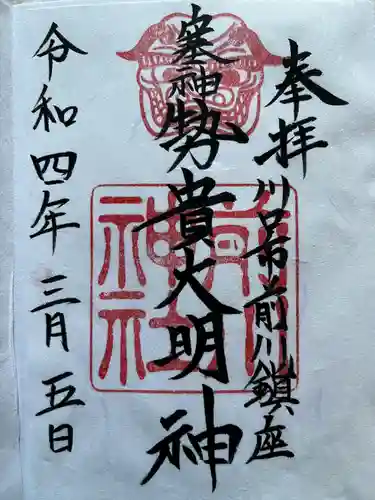 奉拝
川口市前川鎮座
塞神
勢貴大明神
前川神社
令和四年三月五日